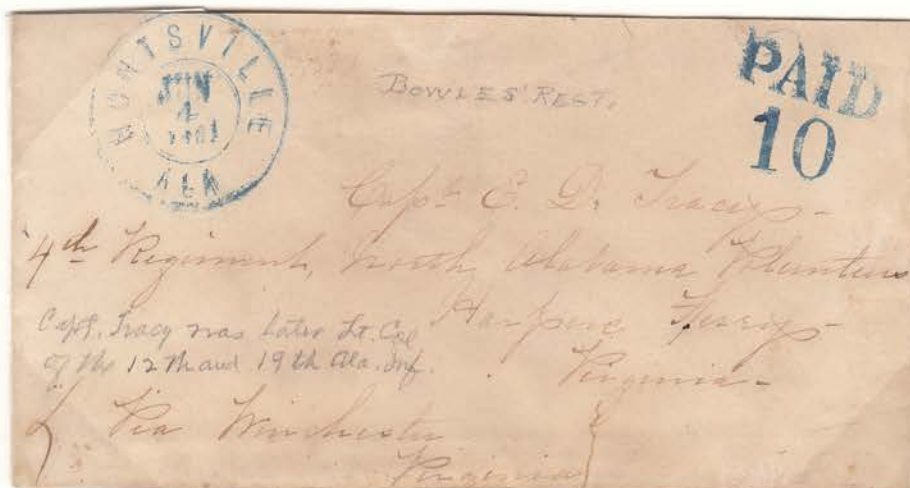 HUNTSVILLE
JUN
4
1861
ALA
PAID
10
BOWLES' REGT.
Capt E. D. Tracy-
4th Regiment, North Alabama Volunteers
Harpers Ferry-
Virginia-
Capt. Tracy was later Lt. Col
of the 12th and 19th Ala. Inf.
Via Winchester
Virginia